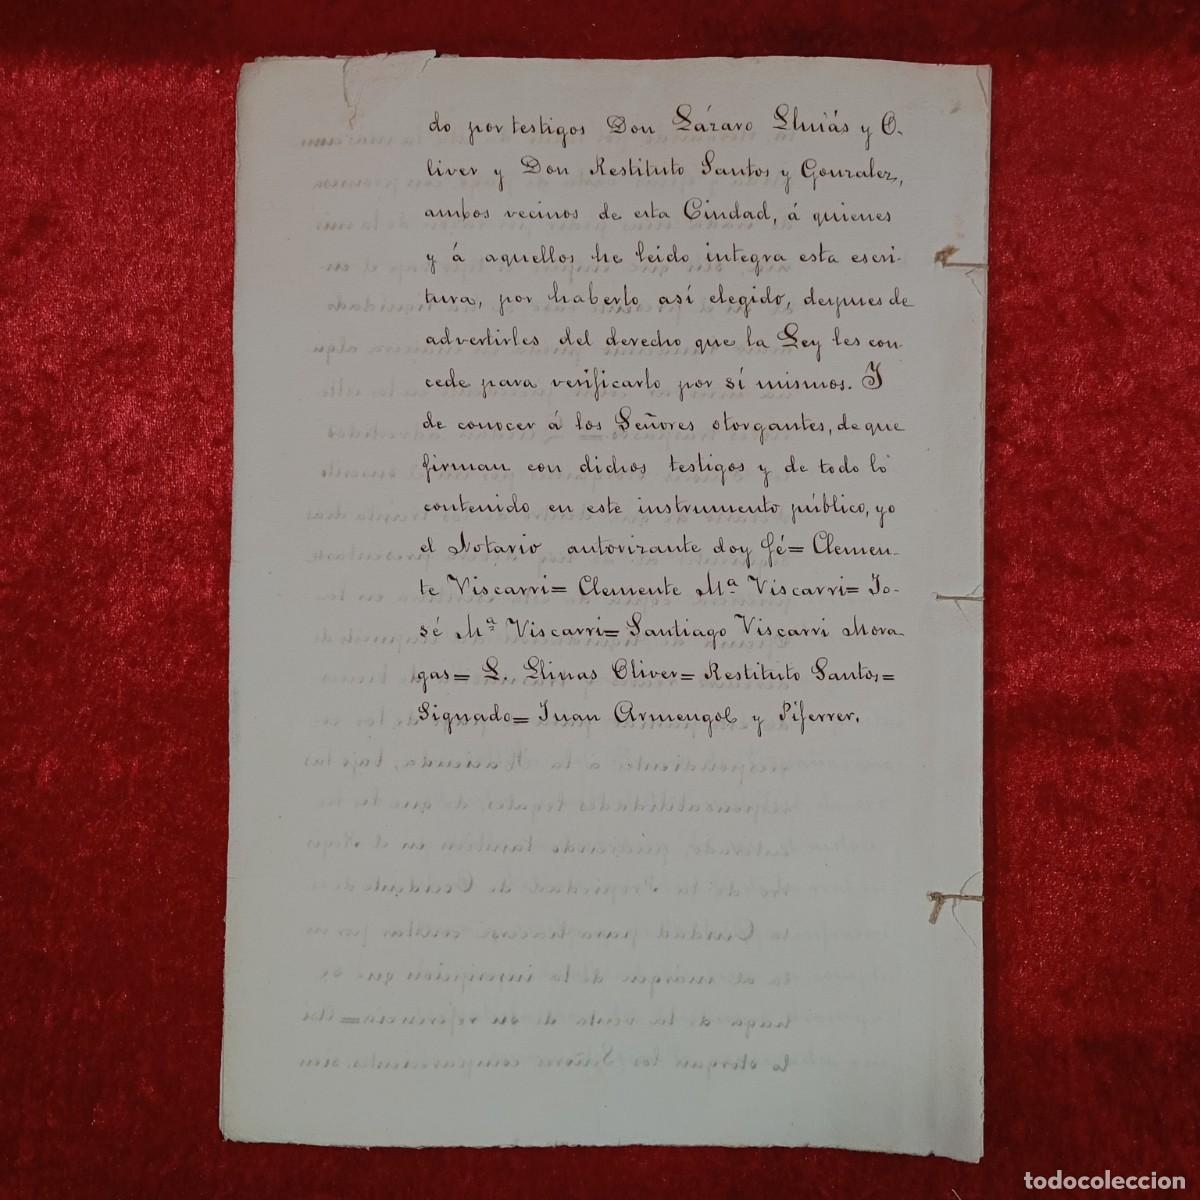 do por testigos Don Lázaro Llinás y O-
liver y Don Restituto Santos y Gonzalez,
ambos vecinos de esta Ciudad, á quienes
y á aquellos he leido integra esta escri-
tura, por haberlo así elegido, despues de
advertirles del derecho que la Ley les con-
cede para verificarlo por sí mismos. Y
de conocer á los Señores otorgantes, de que
firman con dichos testigos y de todo lo
contenido en este instrumento público, yo
el Notario autorizante doy fé= Clemen-
te Viscarri= Clemente Mª Viscarri= Jo-
sé Mª Viscarri= Santiago Viscarri Mora-
gas= L. Llinas Oliver= Restituto Santos=
Signado= Juan Armengol y Piferrer.
todocoleccion